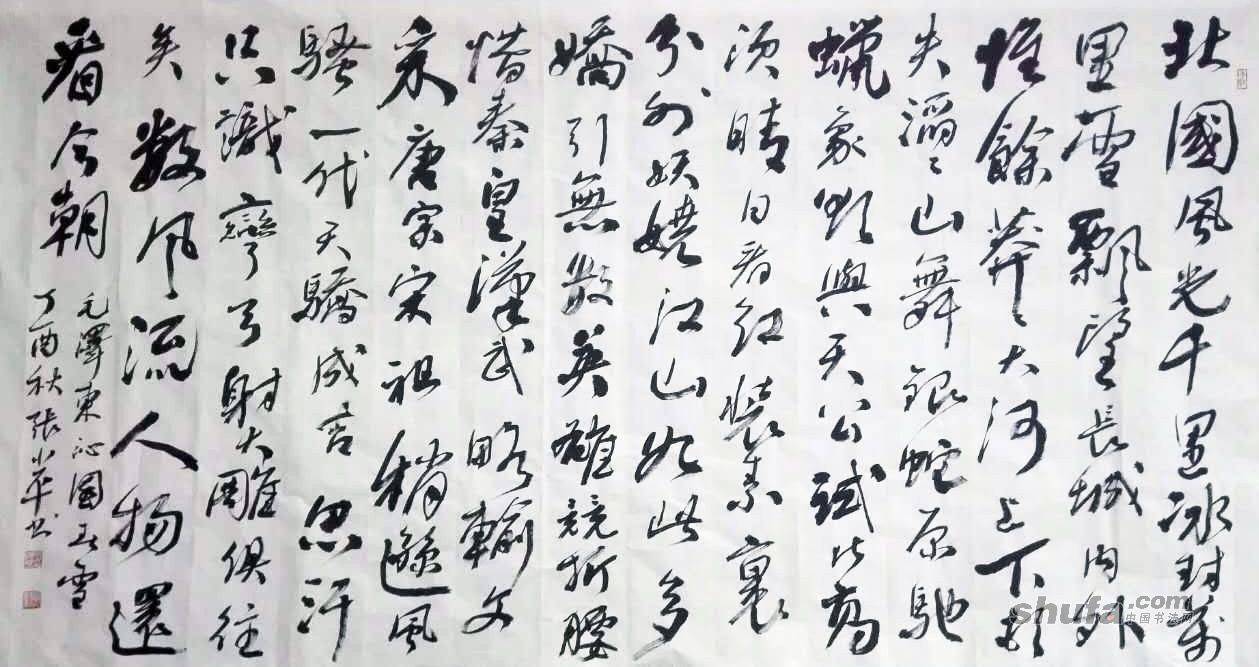 北國風光千里冰封萬
里雪飄望長城內外
惟餘莽〻大河上下頓
失滔〻山舞銀蛇原馳
蠟象欲與天公試比高
須晴日看紅裝素裹
分外妖嬈江山如此多
嬌引無數英雄競折腰
惜秦皇漢武略輸文
采唐宗宋祖稍遜風
騷一代天驕成吉思汗
只識彎弓射大雕俱往
矣數風流人物還
看今朝
毛澤東沁園春雪
丁酉秋張小平书
shufa.com
中国书法网